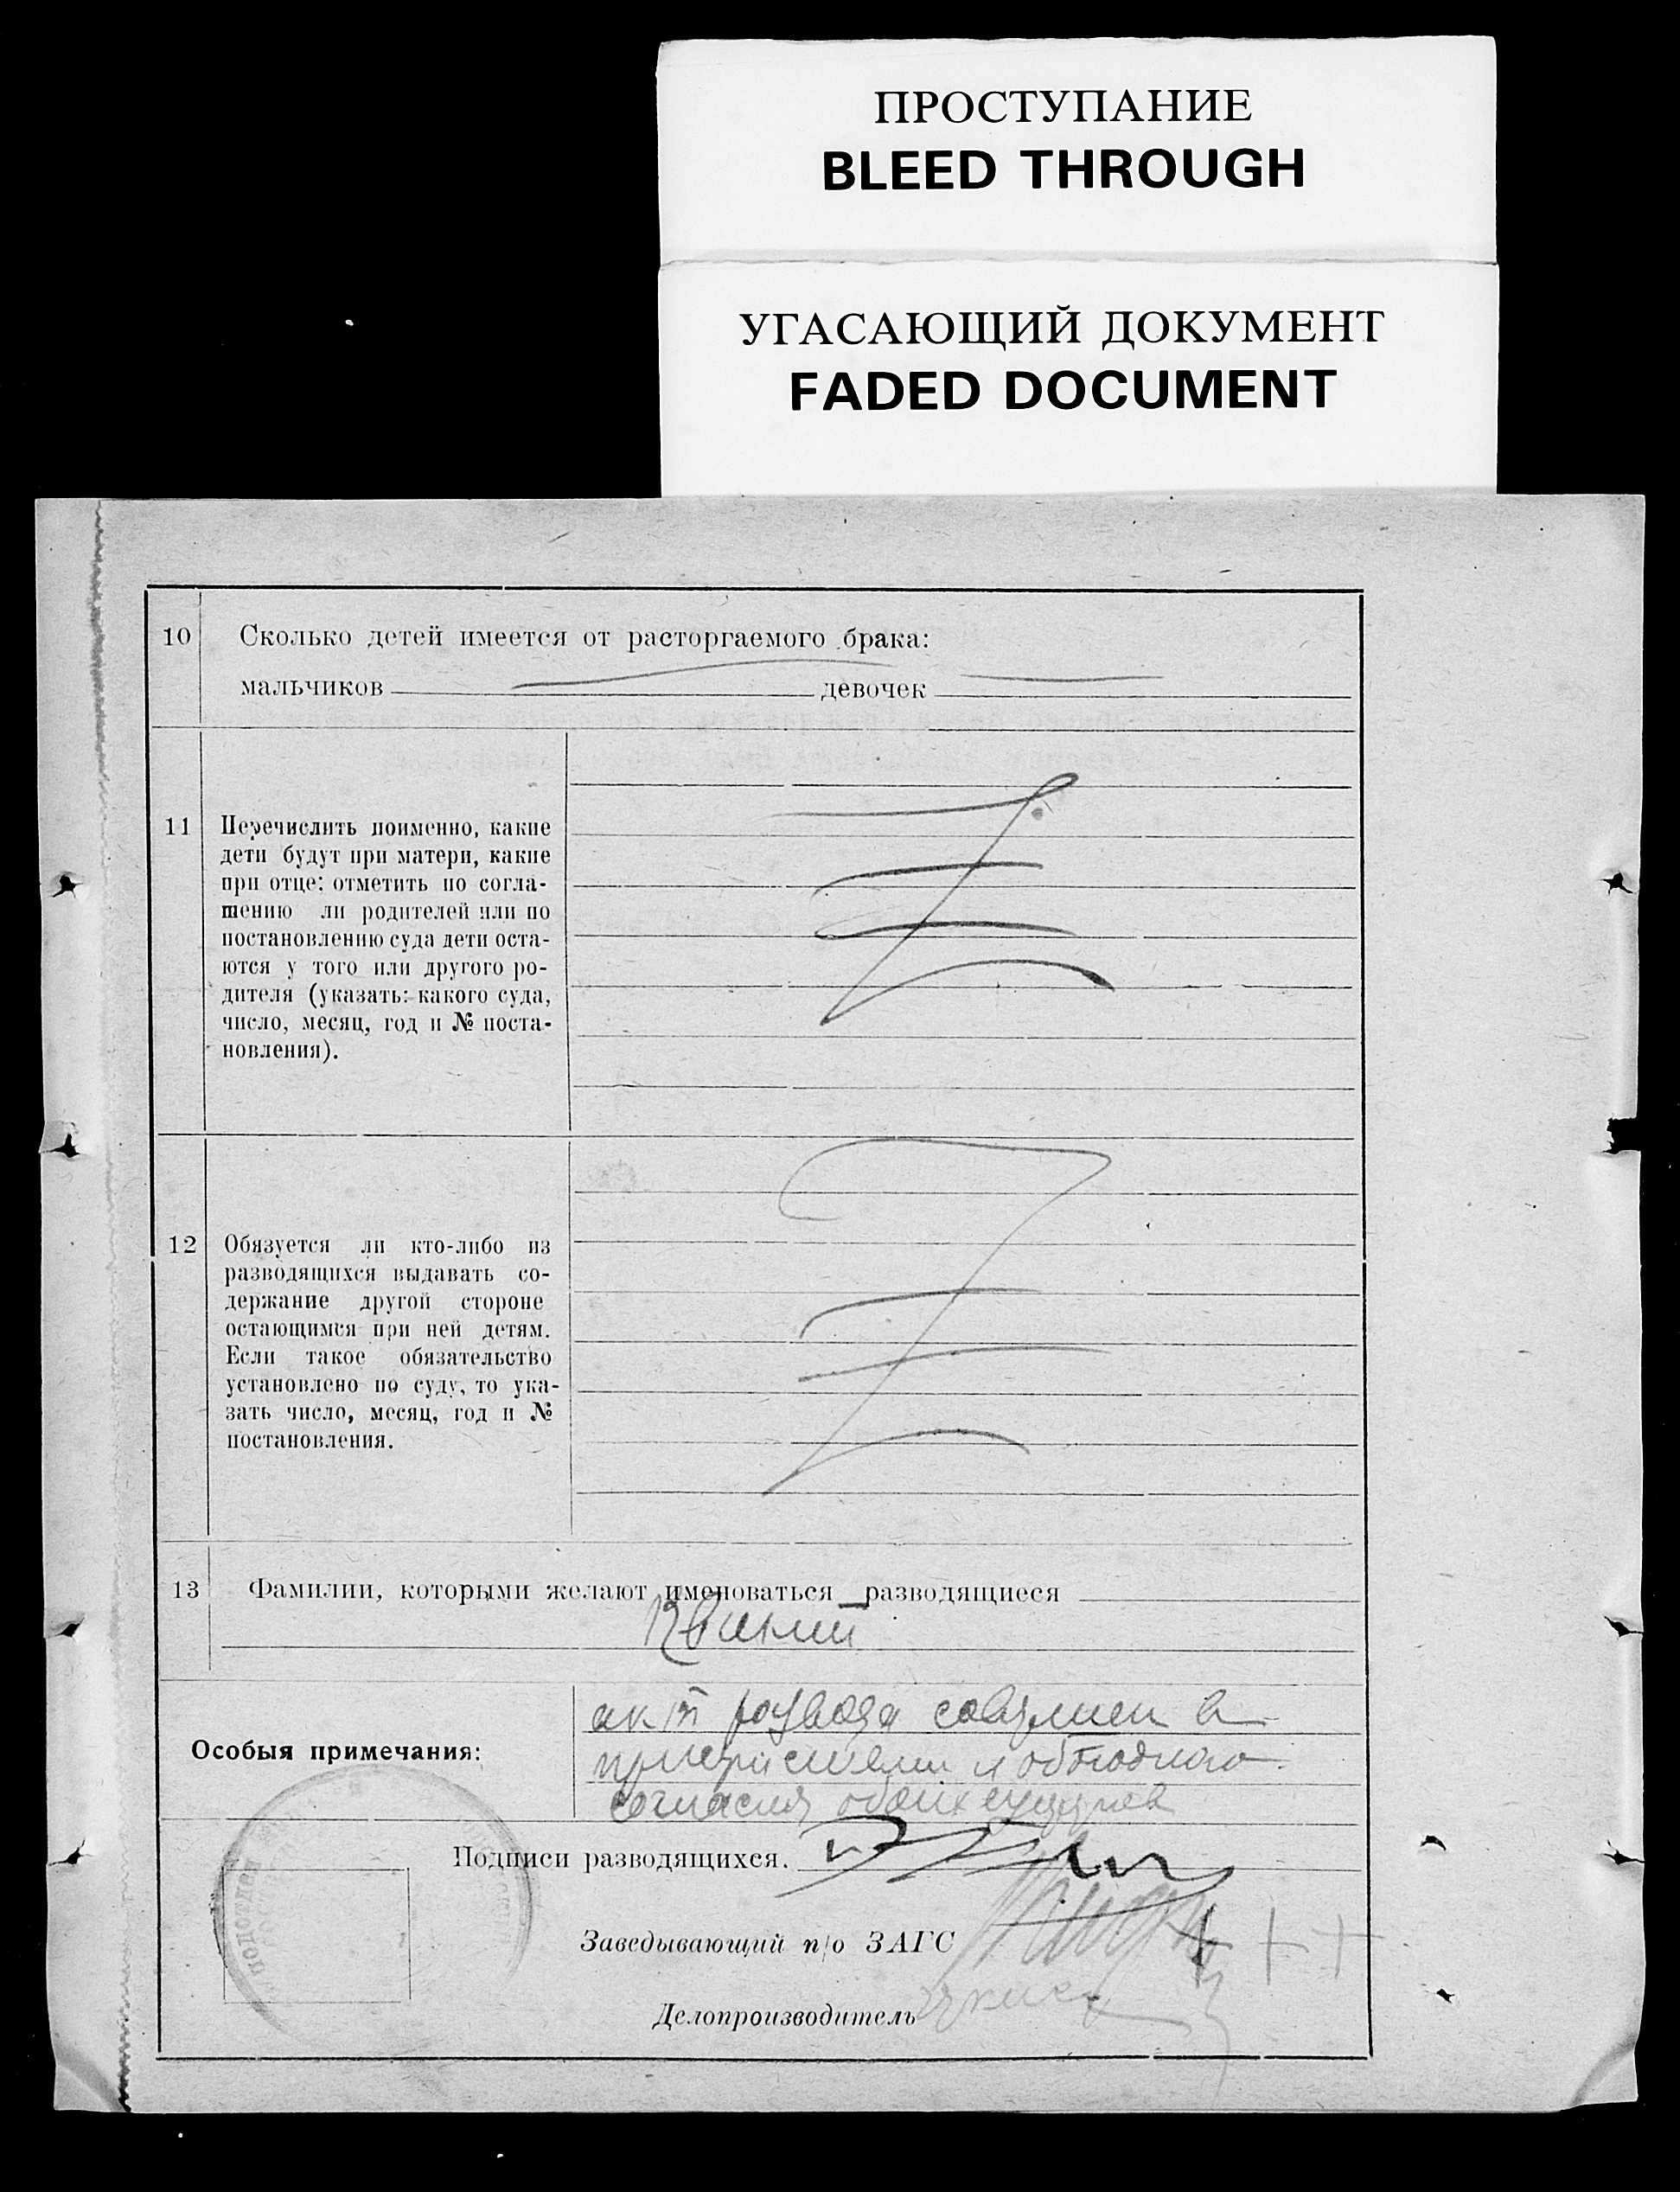 ПРОСТУПАНИЕ
BLEED THROUGH
УГАСАЮЩИЙ ДОКУМЕНТ
FADED DOCUMENT
10 Сколько детей имеется от расторгаемого брака:
мальчиков девочек
11 Перечислить поименно, какие
дети будут при матери, какие
при отце: отметить по согла-
шению ли родителей или по
постановлению суда дети оста-
ются у того или другого ро-
дителя (указать: какого суда,
число, месяц, год и № поста-
новления).
12 Обязуется ли кто-либо из
разводящихся выдавать со-
держание другой стороне
остающимся при ней детям.
Если такое обязательство
установлено по суду, то ука-
зать число, месяц, год и №
постановления.
13 Фамилии, которыми желают именоваться разводящиеся
акт развода в
Особыя примечания:
согласия обоих
Подписи разводящихся.
подотдел
Заведывающий п/о ЗАГС
+++
Делопроизводитель